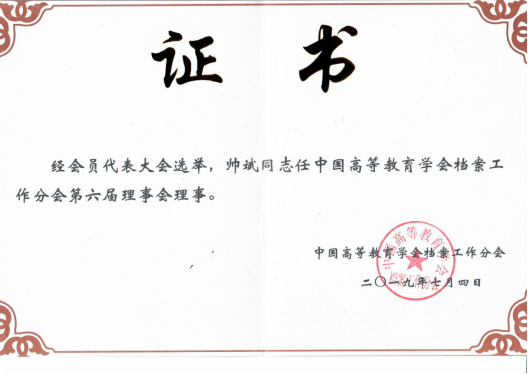 证书
经会员代表大会选举，帅斌同志任中国高等教育学会档案工
作分会第六届理事会理事。
中国高等教育学会档案工作分会
二〇一九年七月四日
中国高等教育学会
档案工作分会